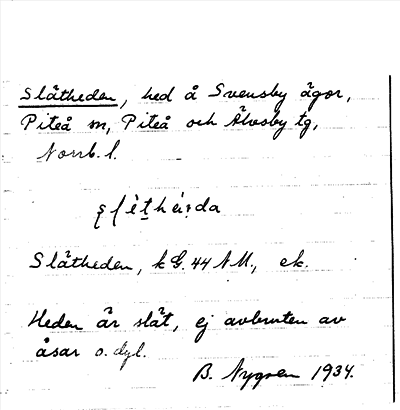 Slätheden, hed å Svensby ägor,
Piteå sn, Piteå och Älvsby tg,
Norrb. l.
Slätheden, k G. 44 NM, ek.
Heden är slät, ej avbruten av
åsar o. dyl.
B. Nygren 1934.